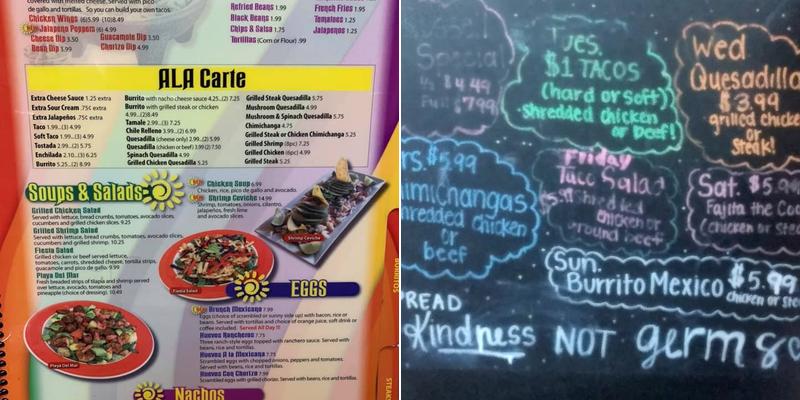 covered with melted cheese. Served with pico
de gallo and tortillas. So you can build your own tacos.
Chicken Wings (6)5.99 (10)8.49
Jalapeno Peppers (6) 4.99
Cheese Dip 3.50 Guacamole Dip 3.50
Bean Dip 3.99 Chorizo Dip 4.99
Refried Beans 1.99
Black Beans 1.99
Mexican Rice 1.99
Tortillas (Corn or Flour) .99
French Fries 1.95
Tomatoes 1.25
Jalapenos 1.25
ALA Carte
Extra Cheese Sauce 1.25 extra
Extra Sour Cream .75¢ extra
Extra Jalapeños .75¢ extra
Taco 1.99...(3) 4.99
Soft Taco 1.99...(3) 4.99
Tostada 2.99...(2) 5.75
Enchilada 2.10...(3) 6.25
Burrito 5.25...(2) 8.99
Burrito with nacho cheese sauce 4.25...(2) 7.25
Burrito with grilled steak or chicken
4.99...(2)8.49
Tamale 2.99...(3) 7.25
Chile Relleno 3.99...(2) 6.99
Quesadilla (cheese only) 2.99...(2) 5.99
Quesadilla (chicken or beef) 3.99 (2) 7.50
Spinach Quesadilla 4.99
Grilled Chicken Quesadilla 5.25
Grilled Steak Quesadilla 5.75
Mushroom Quesadilla 4.99
Mushroom & Spinach Quesadilla 5.75
Chimichanga 4.75
Grilled Steak or Chicken Chimichanga 5.25
Grilled Shrimp (8pc) 7.25
Grilled Chicken (6pc) 4.99
Grilled Steak 5.25
Soups & Salads
Grilled Chicken Salad
Served with lettuce, bread crumbs, tomatoes, avocado slices,
cucumbers and grilled chicken slices. 9.25
Grilled Shrimp Salad
Served with lettuce, bread crumbs, tomatoes, avocado slices,
cucumbers and grilled shrimp. 10.25
Fiesta Salad
Grilled chicken or beef served lettuce,
tomatoes, carrots, shredded cheese, tortilla strips,
guacamole and pico de gallo 9.99
Playa Del Mar
Fresh breaded strips of tilapia and shrimp served
over lettuce, avocado, tomatoes and
pineapple (choice of dressing). 10.49
Chicken Soup 6.99
Chicken, rice, pico de gallo and avocado.
Shrimp Ceviche 14.99
Shrimp, tomatoes, onions, cilantro,
jalapeños, fresh lime
and avocado slices.
Shrimp Ceviche
Fiesta Salad
Playa Del Mar
EGGS
Brunch Mexicano 7.99
Eggs (choice of scrambled or sunny side up) with bacon, rice or
beans. Served with tortillas and choice of orange juice, soft drink or
coffee included. Served All Day !!!
Huevos Rancheros 7.75
Three ranch-style eggs topped with ranchero sauce. Served with
beans, rice and tortillas.
Huevos A la Mexicana 7.75
Scrambled eggs with chopped onions, peppers and tomatoes.
Served with beans, rice and tortillas.
Huevos Con Chorizo 7.99
Scrambled eggs with grilled chorizo. Served with beans, rice and tortillas.
Nachos
BURRITOS
STEAKS
Special
$4.49
Full $7.99
Tues.
$1 TACOS
(hard or soft)
shredded chicken
or beef!
Wed
Quesadilla
$3.99
grilled chicke
or
steak!
rs. $5.99
himichangas
hredded chicken
or
beef
Friday
Taco Salad
$5.99 shredded
chicken or
ground beef
Sat. $5.9
Fajita
(chicken or stea
Sun.
Burrito Mexico $5.99
chicken or ste
READ
Kindness NOT germs